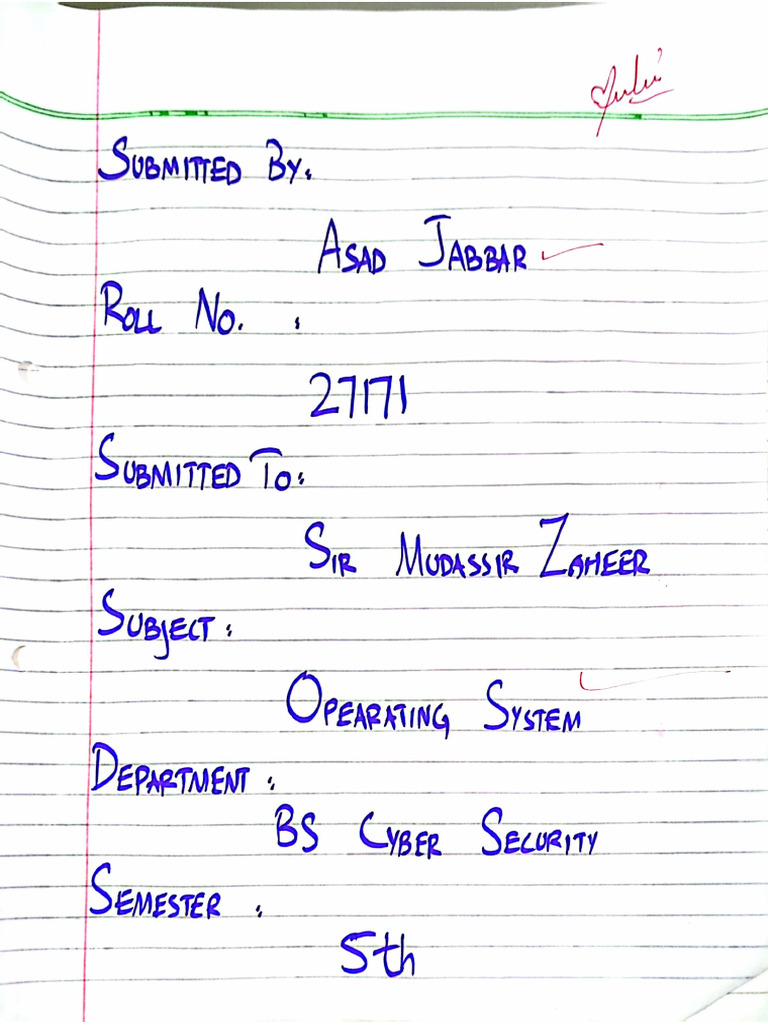 SUBMITTED BY:
ASAD JABBAR
ROLL NO. :
27171
SUBMITTED TO:
SIR MUDASSIR ZAHEER
SUBJECT:
OPEARATING SYSTEM
DEPARTMENT:
BS CYBER SECURITY
SEMESTER :
5th